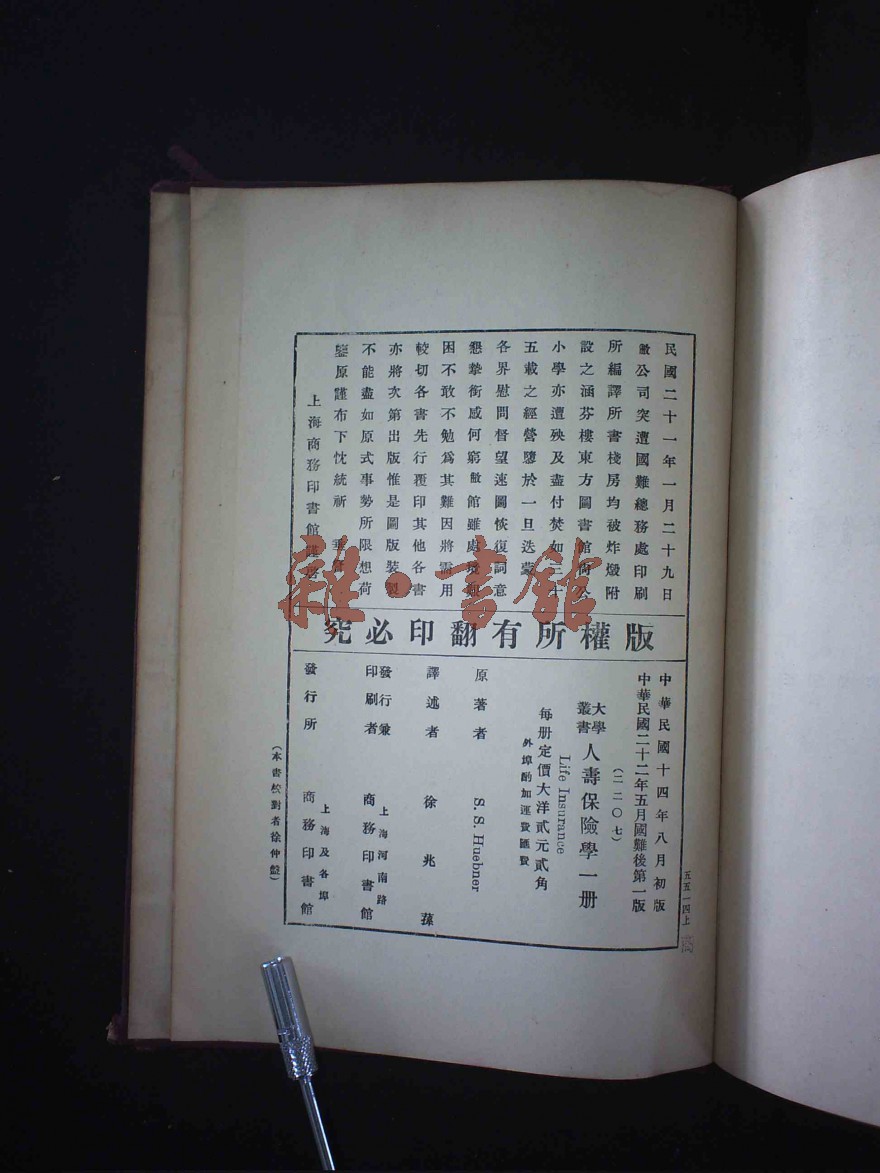 民國二十一年一月二十九日
敝公司突遭國難總務處印刷
所編譯所書棧房均被炸燬附
設之涵芬樓東方圖書館尚公
小學亦遭殃及盡付焚如三十
五載之經營隳於一旦迭蒙
各界慰問督望速圖恢復詞意
懇摯銜感何窮敝館雖處境艱
困不敢不勉爲其難因將需用
較切各書先行覆印其他各書
亦將次第出版惟是圖版裝製
不能盡如原式事勢所限想荷
鑒原謹布下忱統祈 垂詧
上海商務印書館謹啓
版權所有翻印必究
中華民國十四年八月初版
中華民國二十二年五月國難後第一版
(二二〇七)
大學叢書 人壽保險學一册
Life Insurance
每册定價大洋貳元貳角
外埠酌加運費匯費
原著者 S. S. Huebner
譯述者 徐兆蓀
發行兼印刷者 上海河南路 商務印書館
發行所 上海及各埠 商務印書館
(本書校對者徐仲盤)
五五一四上
雜·書館